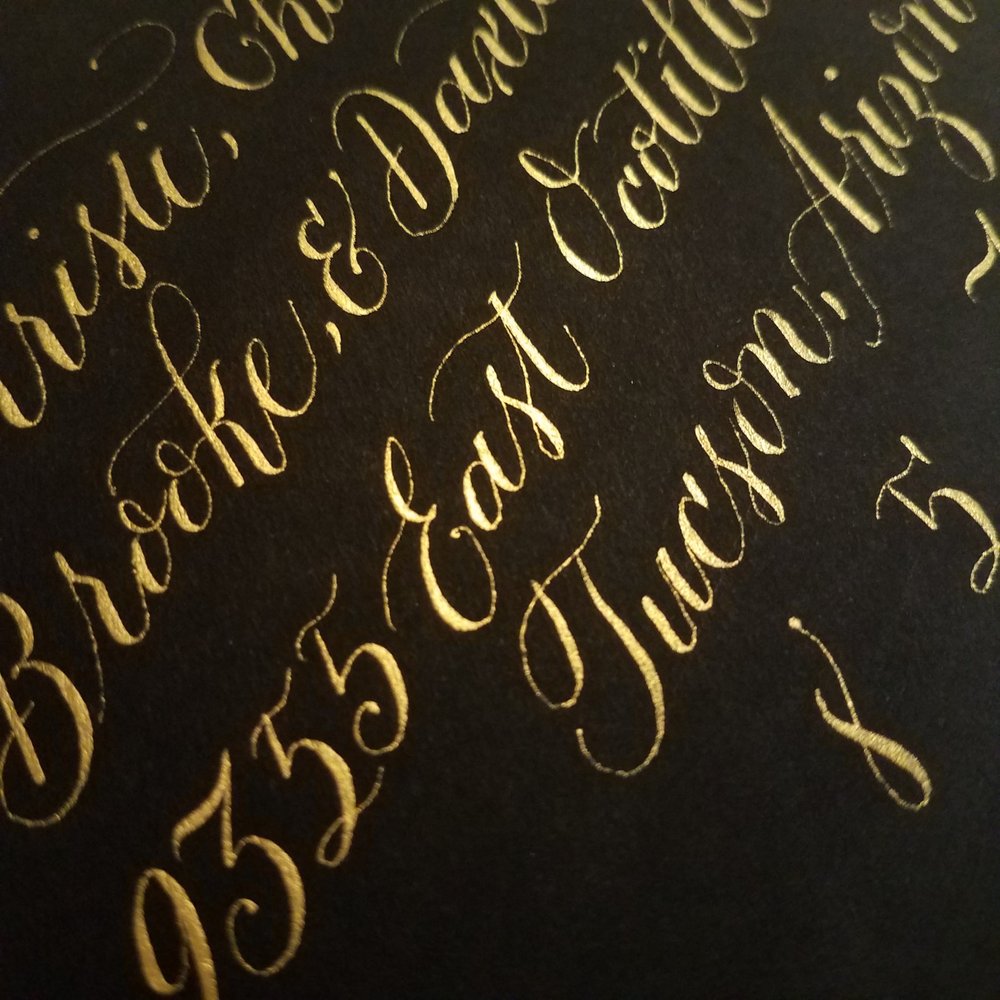 risti, Ch
Brooke, & Dax
9355 East Ocotill
Tucson, Arizon
8 5